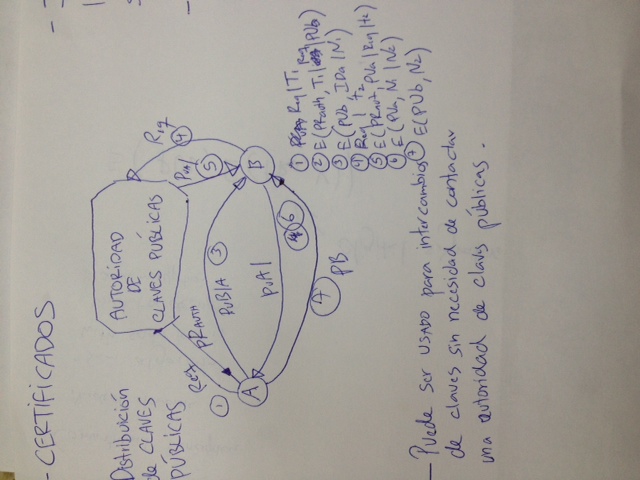 - CERTIFICADOS
Distribuición
de CLAVES
PÚBLICAS
AUTORIDAD
DE
CLAVES PÚBLICAS
① Req
PRAUTH
PUB/A ③
PUA/
⑥
⑦ PB
PUA/
⑤
Req
④
A
B
① Req | T1
② E(PRauth, T1 | Req | PUb)
③ E(PUb, IDa | N1)
④ Req | t2
⑤ E(PRaut, PUa | Req | t2)
⑥ E(PUa, N1 | N2)
⑦ E(PUb, N2)
- Puede ser USADO para intercambios
de claves sin necesidad de contactar
una autoridad de claves públicas.